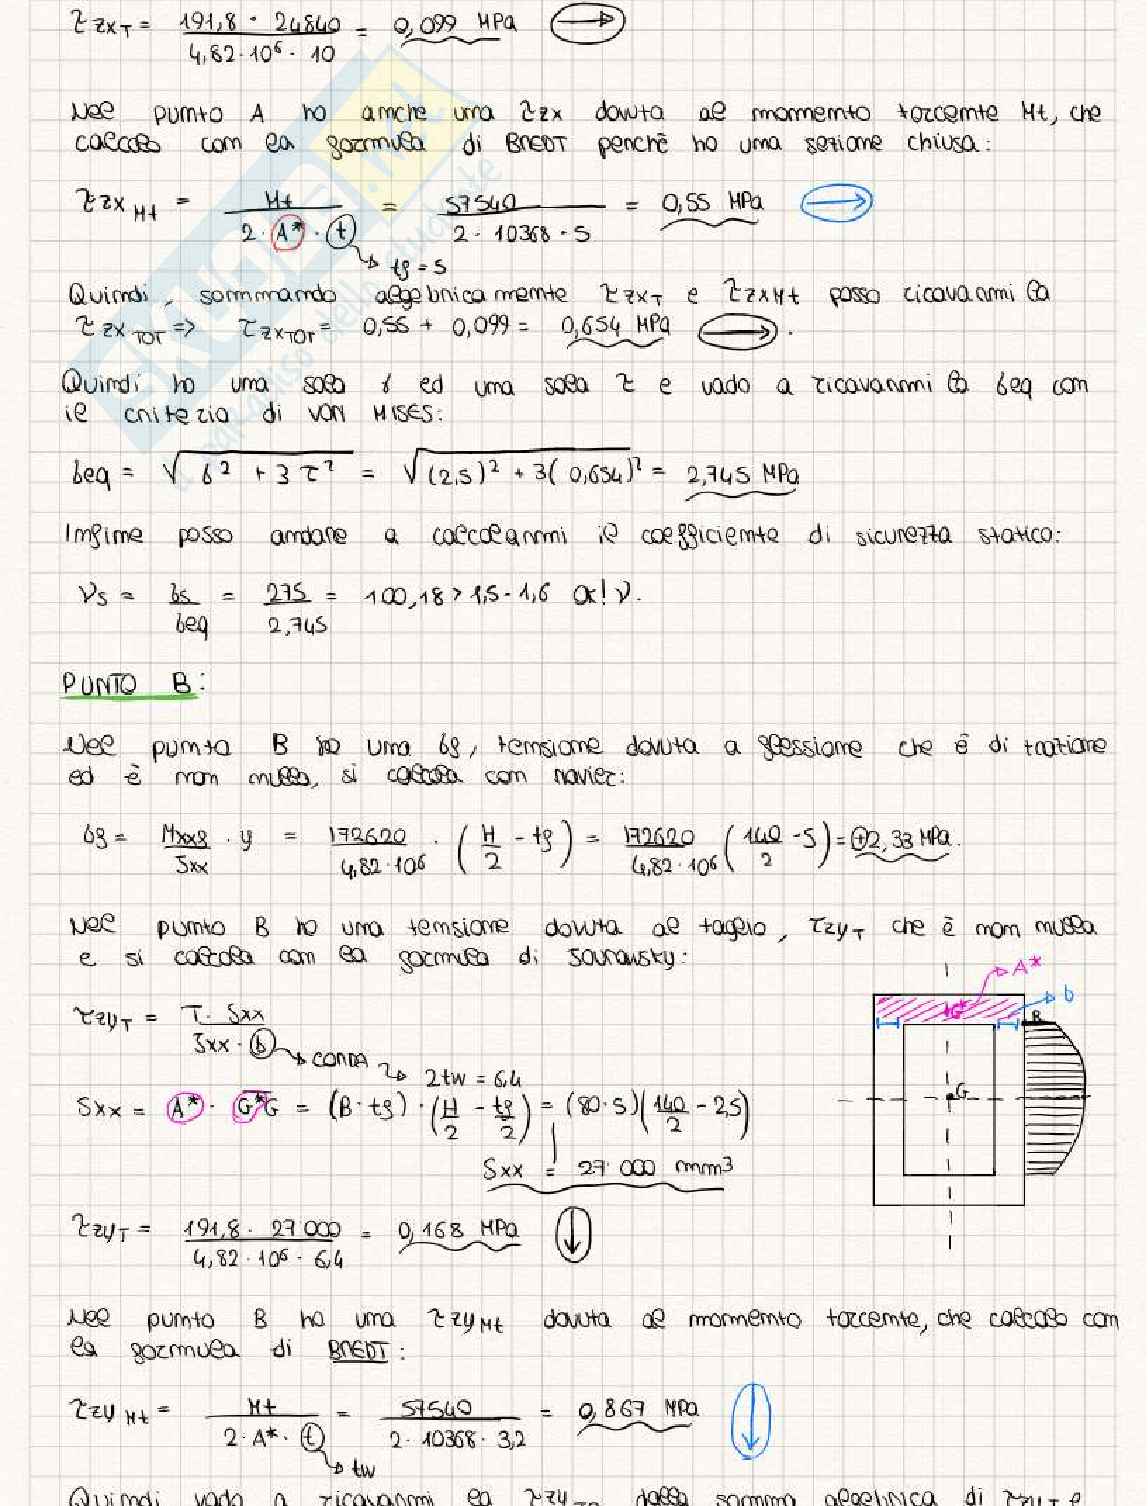 τzx_T = 191,8 · 24840 / 4,82·10⁶ · 10 = 0,099 MPa →
Nel punto A ho anche una τzx dovuta al momento torcente Mt, che
calcolo con la formula di BREDT perchè ho una sezione chiusa:
τzx_Mt = Mt / 2·A*·t = 57540 / 2·10368·5 = 0,55 MPa →
tf = 5
Quindi, sommando algebricamente τzx_T e τzx_Mt posso ricavarmi la
τzx_TOT => τzx_TOT = 0,55 + 0,099 = 0,654 MPa → .
Quindi ho una sola σ ed una sola τ e vado a ricavarmi la σeq con
il criterio di VON MISES:
σeq = √(σ² + 3τ²) = √((2,5)² + 3(0,654)²) = 2,745 MPa
Infine posso andare a calcolarmi il coefficiente di sicurezza statico:
νs = σs / σeq = 275 / 2,745 = 100,18 > 1,5 - 1,6 Ok! ν.
PUNTO B:
Nel punto B ho una σf, tensione dovuta a flessione che è di trazione
ed è non nulla, si calcola con navier:
σf = Mxxf / Jxx · y = 172620 / 4,82·10⁶ · (H/2 - tf) = 172620 / 4,82·10⁶ (140/2 - 5) = ⊕2,33 MPa.
Nel punto B ho una tensione dovuta al taglio, τzy_T che è non nulla
e si calcola con la formula di Jourawsky:
A*
b
G*
B
G
τzy_T = T · Sxx / Jxx · b
CORDA
2tw = 6,4
Sxx = A* · G*G = (B · tf) · (H/2 - tf/2) = (80·5)(140/2 - 2,5)
Sxx = 27 000 mm³
τzy_T = 191,8 · 27 000 / 4,82·10⁶ · 6,4 = 0,168 MPa ↓
Nel punto B ho una τzy_Mt dovuta al momento torcente, che calcolo con
la formula di BREDT:
τzy_Mt = Mt / 2·A*·t = 57540 / 2·10368·3,2 = 0,867 MPa ↓
tw
Quindi vado a ricavarmi la τzy dalla somma algebrica di τzy_T e